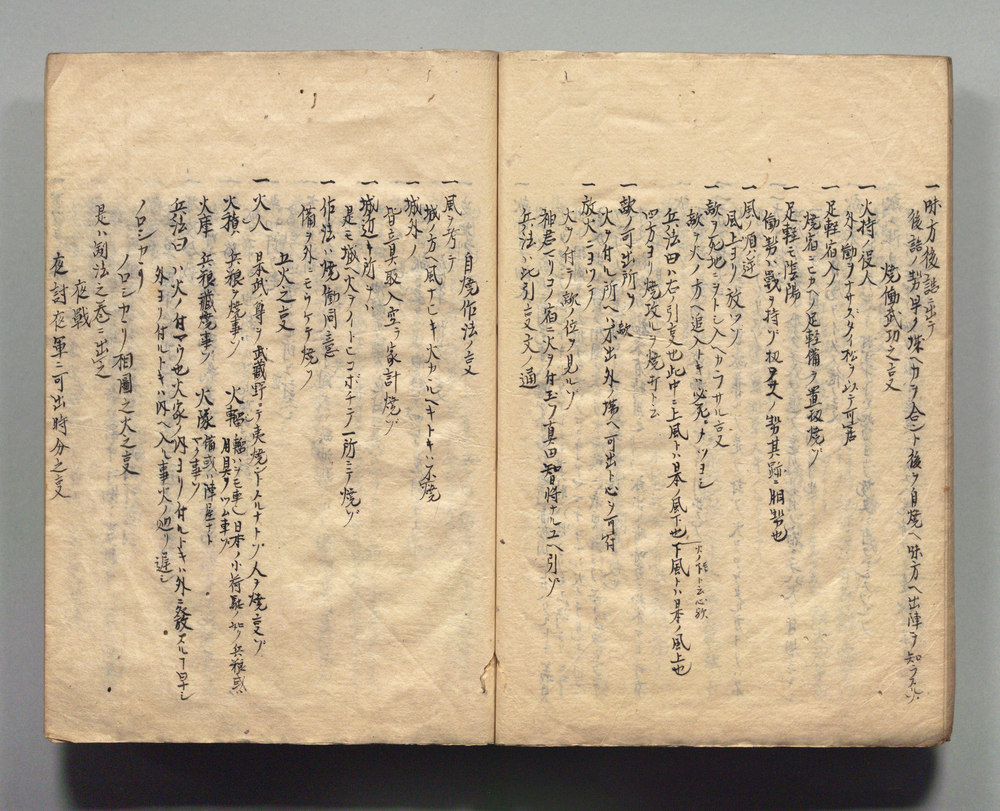 一味方後詰ニ出テ
後詰ノ勢早ノ味ヘカヲ合ント後ヲ自焼ヘ味方ヘ出陣ヲ知ラスルソ
焼働武功之事
一火持ノ役人
外ノ働ヲナサスタイ松ヲ以テ可居
一足軽宿入ノ
焼宿ニモカヘリ足軽備ヲ置扱焼ソ
一足軽モ陰陽
働勢ハ戦ヲ持ソ扨又ノ勢其跡ニ相勢也
一風ノ順逆
風上ヨリ放ツソ
一敵ヲ死地ヲトシ入ヘカラサル事
敵ヲ火ノ方ヘ追入トキハ必死シテツヨシ
兵法曰ハ右ノ引事也此中ニ上風トハ日本ノ風下也下風トハ日本ノ風上也
火ノ下ト云心歟
四方ヨリ焼攻ルヲ焼崩ト云
一敵ノ可出所ヲ
火ヲ付ル所ヘ不出外ノ場ヘ可出ト心ヲ可付
一放火ニヨツテ
火ヲ付テ敵ノ位ヲ見ルソ
神君マリコノ宿ニ火ヲ付玉ソ真田智将ナルユヘ引ソ
一兵法ニ此引事文ノ通
自焼作法之事
一風ヲ考テ
城ノ方ヘ風ナヒキ火カヽルヘキトキハ不焼
一城外ノ
皆兵具取入空ラ家計焼ソ
一城近キ所ヲハ
是モ城ヘ火アイトヒコボチテ一所ニテ焼ソ
一作法ハ焼働同意
備ヲ外ニモウケテ焼ク
五火之事
一火人　日本武ノ尊ヲ武蔵野ニテ夷焼ントスルナトソ人ヲ焼事ソ
火積　兵粮ヲ焼事ソ　火輜　輜ハ車也日本ノ小荷駄ノ如ク兵粮或
用具ヲツム車ソ
火庫　兵粮蔵焼事ソ　火隊　備或ハ陣屋ナト
ヤク事ソ
兵法曰　ハ火ノ付ヤウ也火家ノ内ヨリ付ルトキハ外ニ發スルヿ早シ
外ヨリ付ルトキハ内ヘ入ル事火ノ廻リ遅シ
ノロシカヽリ
ノロシカヽリ相圖之火之事
是ハ別法之巻ニ出之
夜戦
夜討夜軍ニ可出時分之事